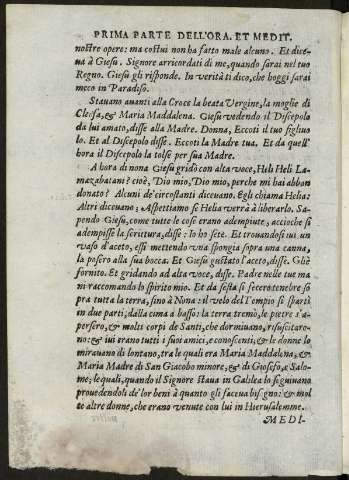 PRIMA PARTE DELL'ORA. ET MEDIT.
nostre opere: ma costui non ha fatto male alcuno. Et dice-
ua à Giesu. Signore arricordati di me, quando sarai nel tuo
Regno. Giesu gli risponde. In verità ti dico, che hoggi sarai
meco in Paradiso.
Stauano auanti alla Croce la beata Vergine, la moglie di
Cleofa, & Maria Maddalena. Giesu vedendo il Discepolo
da lui amato, disse alla Madre. Donna, Eccoti il tuo figliuo
lo. Et al Discepolo disse. Eccoti la Madre tua. Et da quell'
hora il Discepolo la tolse per sua Madre.
A hora di nona Giesu gridò con alta voce, Heli Heli La-
mazabatani? cioè, Dio mio, Dio mio, perche mi hai abban
donato? Alcuni de' circostanti diceuano. Egli chiama Helia:
Altri diceuano; Aspettiamo se Helia verrà à liberarlo. Sa-
pendo Giesu, come tutte le cose erano adempiute; accioche si
adempisse la scrittura, disse: Io ho sete. Et trouandosi iui un
vaso d'aceto, essi mettendo una spongia sopra una canna,
la posero alla sua bocca. Et Giesu gustato l'aceto, disse. Gliè
fornito. Et gridando ad alta voce, disse. Padre nelle tue ma
ni raccomando lo spirito mio. Et da sesta si fecero tenebre so
pra tutta la terra, sino à Nona: il velo del Tempio si spartì
in due parti, dalla cima a basso: la terra tremò, le pietre s'a-
persero, & molti corpi de Santi, che dormiuano, risuscitaro-
no: & iui erano tutti i suoi amici, e conoscenti, & le donne lo
mirauano di lontano, tra le quali era Maria Maddalena, &
Maria Madre di San Giacobo minore, & di Giosefo, e Salo-
me; le quali, quando il Signore staua in Galilea lo seguiuano
prouedendoli de' lor beni à quanto gli faceua bisogno: & mol
te altre donne, che erano venute con lui in Hierusalemme.
MEDI-